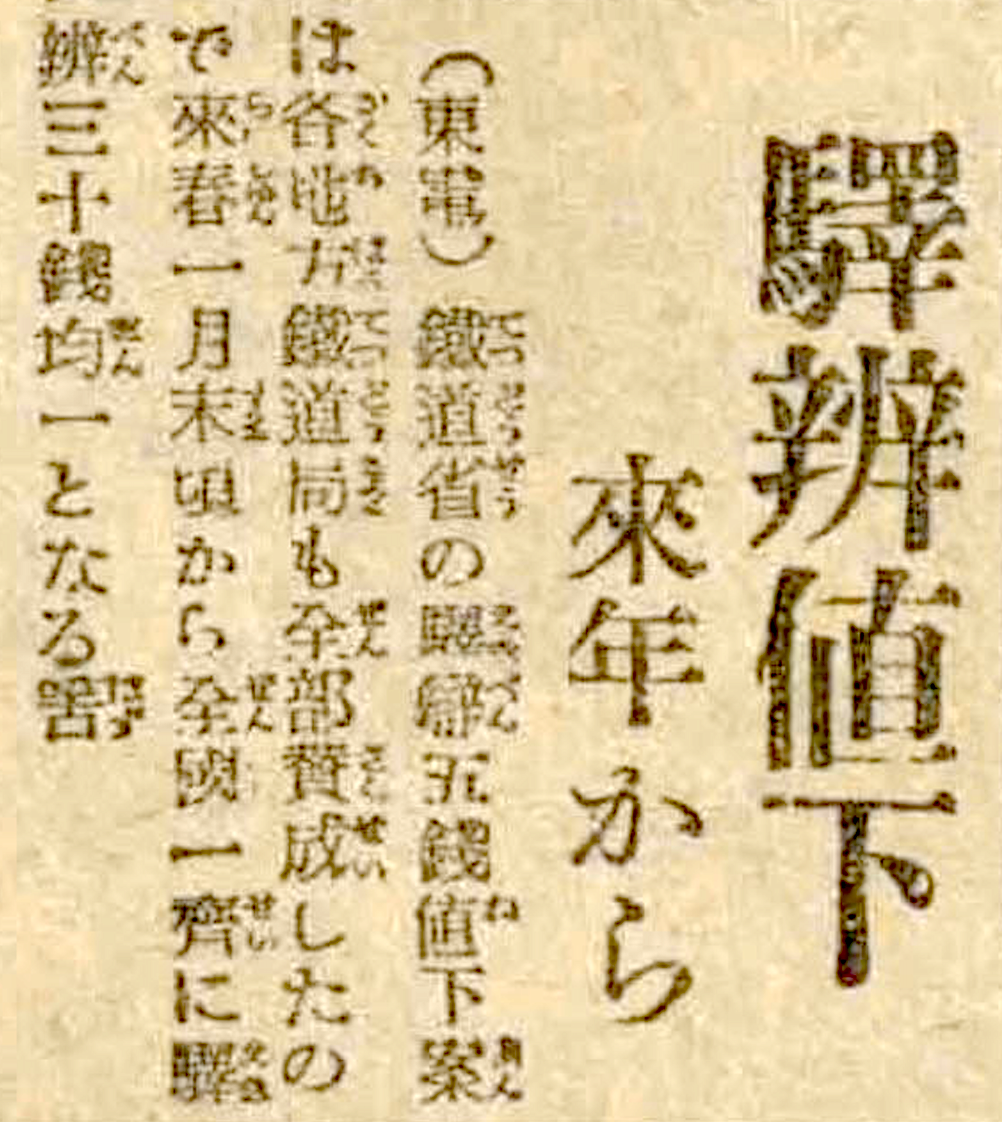 驛辨値下
來年から
（東電）鐵道省の驛辨五錢値下案
は各地方鐵道局も全部賛成したの
で來春一月末頃から全國一齊に驛
辨三十錢均一となる筈